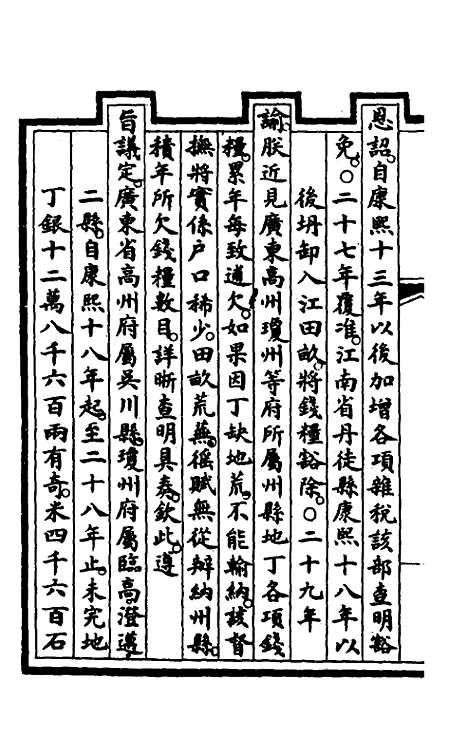 恩詔。自康熙十三年以後加增各項雜稅該部查明豁
免。○二十七年覆准。江南省丹徒縣康熙十八年以
後坍卸入江田畝。將錢糧豁除。○二十九年
諭。朕近見廣東高州瓊州等府所屬州縣地丁各項錢
糧。累年每致逋欠。如果因丁缺地荒。不能輸納。該督
撫將實係戶口稀少。田畝荒蕪。徭賦無從辦納州縣。
積年所欠錢糧數目。詳晰查明具奏。欽此。遵
旨議定。廣東省高州府屬吳川縣。瓊州府屬臨高。澄邁
二縣。自康熙十八年起。至二十八年止。未完地
丁銀十二萬八千六百兩有奇。米四千六百石